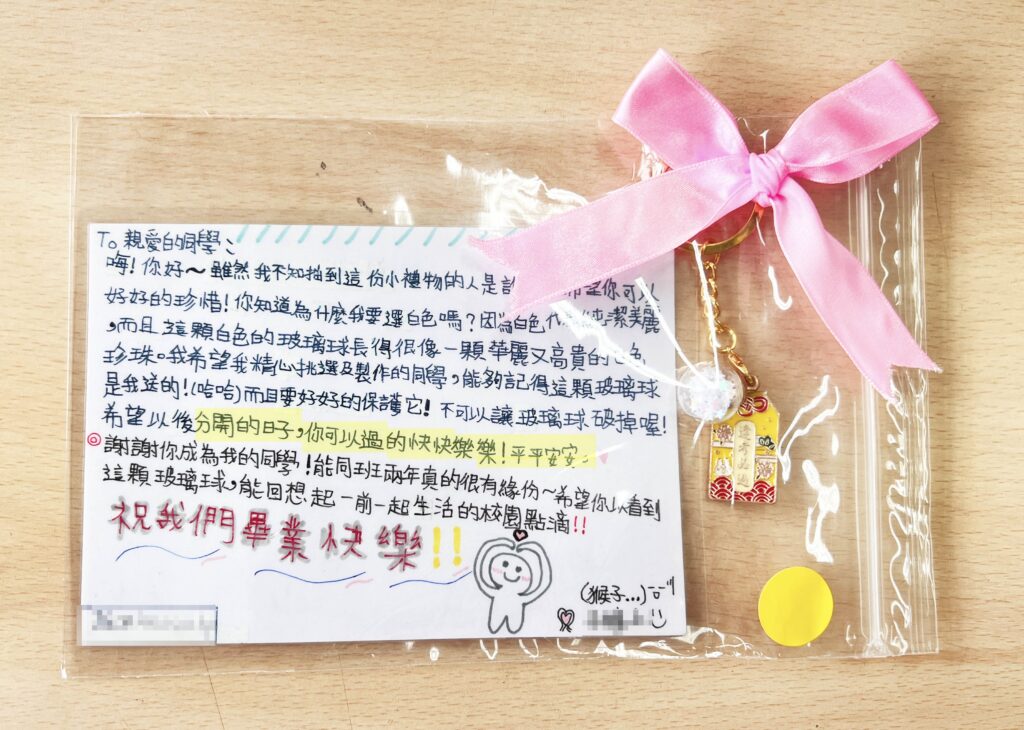 To 親愛的同學:
嗨!你好~雖然我不知抽到這份小禮物的人是 希望你可以
好好的珍惜!你知道為什麼我要選白色嗎?因為白色代 純潔美麗
,而且這顆白色的玻璃球長得很像一顆華麗又高貴的白色
珍珠。我希望我精心挑選及製作的同學,能夠記得這顆玻璃球
是我送的!(哈哈)而且要好好的保護它!不可以讓玻璃球破掉喔!
希望以後分開的日子,你可以過的快快樂樂!平平安安。
◎謝謝你成為我的同學,!能同班兩年真的很有緣份~希望你以看到
這顆玻璃球,能回想起一前一起生活的校園點滴!!
祝我們畢業快樂!!
(猴子...)